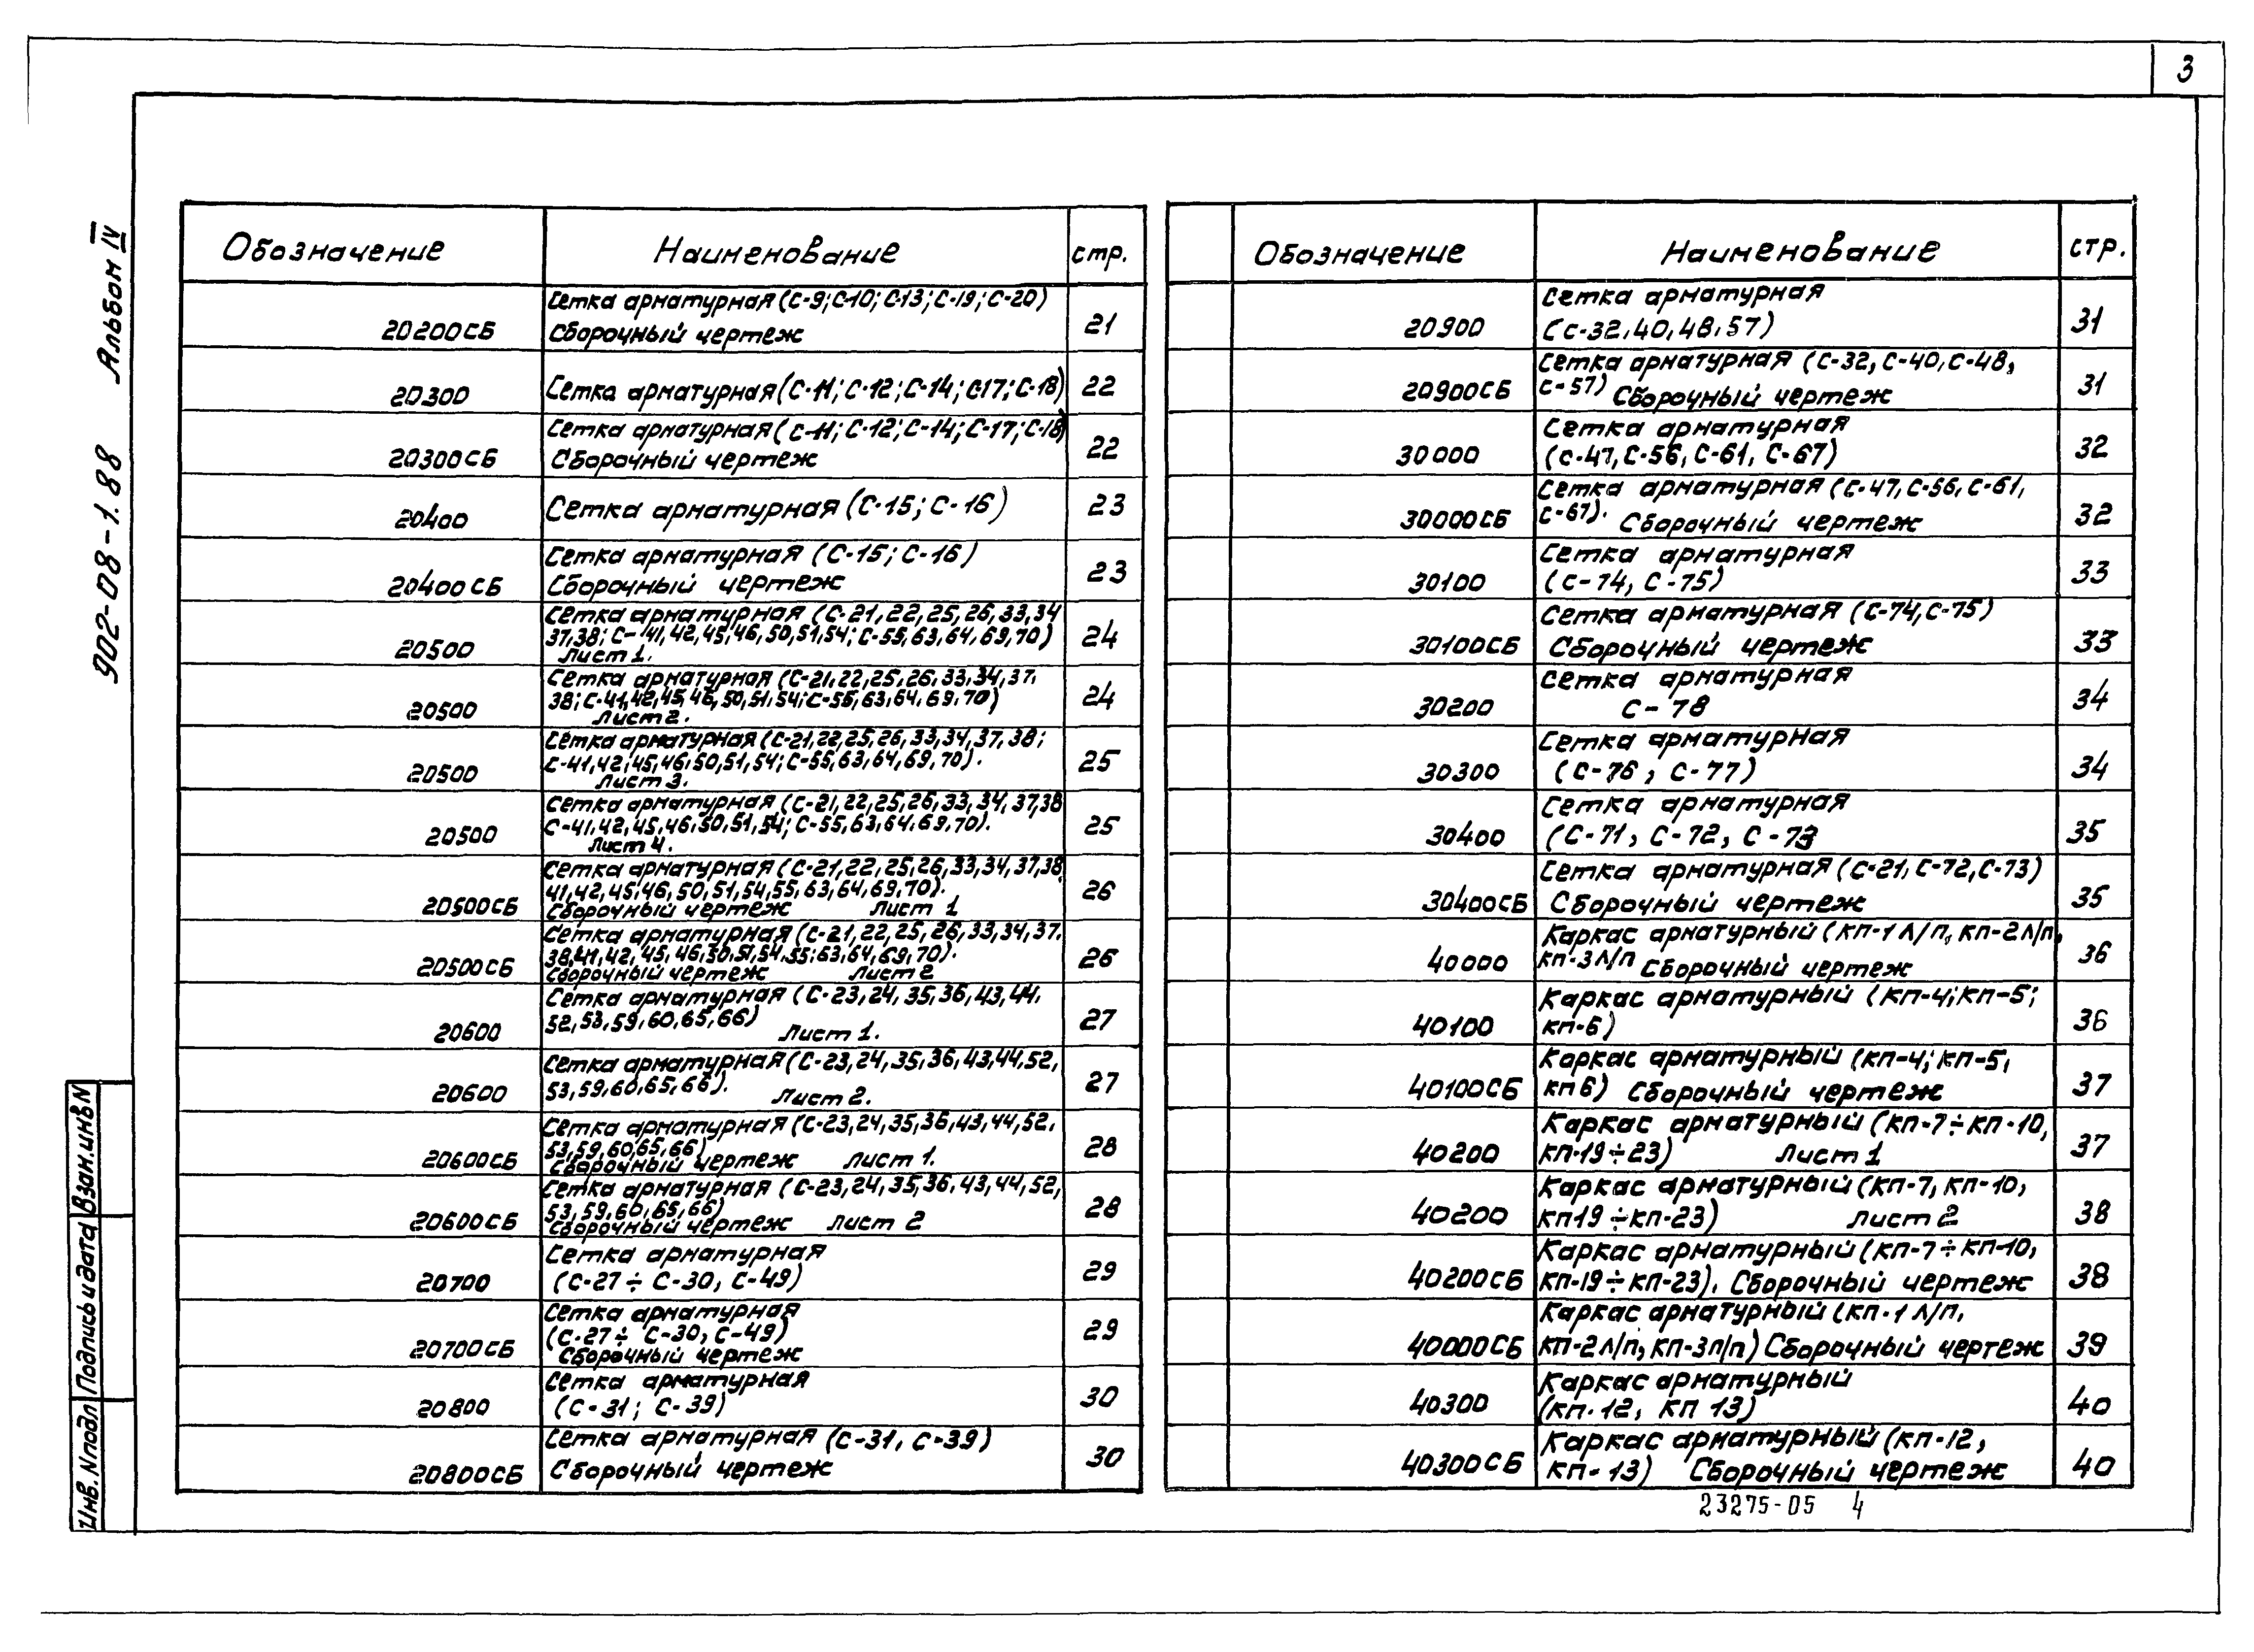 3
902-08-1.88 Альбом IV
Обозначение Наименование стр.
20200СБ Сетка арматурная (С-9; С-10; С-13; С-19; С-20)
Сборочный чертеж 21
20300 Сетка арматурная (С-11; С-12; С-14; С-17; С-18) 22
20300СБ Сетка арматурная (С-11; С-12; С-14; С-17; С-18)
Сборочный чертеж 22
20400 Сетка арматурная (С-15; С-16) 23
20400СБ Сетка арматурная (С-15; С-16)
Сборочный чертеж 23
20500 Сетка арматурная (С-21, 22, 25, 26, 33, 34
37, 38; С-41, 42, 45, 46, 50, 51, 54; С-55, 63, 64, 69, 70)
Лист 1. 24
20500 Сетка арматурная (С-21, 22, 25, 26, 33, 34, 37,
38; С-41, 42, 45, 46, 50, 51, 54; С-55, 63, 64, 69, 70)
Лист 2. 24
20500 Сетка арматурная (С-21, 22, 25, 26, 33, 34, 37, 38;
С-41, 42, 45, 46, 50, 51, 54; С-55, 63, 64, 69, 70).
Лист 3. 25
20500 Сетка арматурная (С-21, 22, 25, 26, 33, 34, 37, 38
С-41, 42, 45, 46, 50, 51, 54; С-55, 63, 64, 69, 70).
Лист 4. 25
20500СБ Сетка арматурная (С-21, 22, 25, 26, 33, 34, 37, 38
41, 42, 45, 46, 50, 51, 54, 55, 63, 64, 69, 70).
Сборочный чертеж Лист 1 26
20500СБ Сетка арматурная (С-21, 22, 25, 26, 33, 34, 37.
38, 41, 42, 45, 46, 50, 51, 54, 55, 63, 64, 69, 70).
Сборочный чертеж Лист 2 26
20600 Сетка арматурная (С-23, 24, 35, 36, 43, 44,
52, 53, 59, 60, 65, 66)
Лист 1. 27
20600 Сетка арматурная (С-23, 24, 35, 36, 43, 44, 52,
53, 59, 60, 65, 66).
Лист 2. 27
20600СБ Сетка арматурная (С-23, 24, 35, 36, 43, 44, 52,
53, 59, 60, 65, 66)
Сборочный чертеж лист 1. 28
20600СБ Сетка арматурная (С-23, 24, 35, 36, 43, 44, 52,
53, 59, 60, 65, 66)
Сборочный чертеж лист 2 28
20700 Сетка арматурная
(С-27÷С-30, С-49) 29
20700СБ Сетка арматурная
(С-27÷С-30, С-49)
Сборочный чертеж 29
20800 Сетка арматурная
(С-31; С-39) 30
20800СБ Сетка арматурная (С-31, С-39)
Сборочный чертеж 30
Обозначение Наименование стр.
20900 Сетка арматурная
(С-32, 40, 48, 57) 31
20900СБ Сетка арматурная (С-32, С-40, С-48,
С-57) Сборочный чертеж 31
30000 Сетка арматурная
(С-47, С-56, С-61, С-67) 32
30000СБ Сетка арматурная (С-47, С-56, С-61,
С-67). Сборочный чертеж 32
30100 Сетка арматурная
(С-74, С-75) 33
30100СБ Сетка арматурная (С-74, С-75)
Сборочный чертеж 33
30200 Сетка арматурная
С-78 34
30300 Сетка арматурная
(С-76, С-77) 34
30400 Сетка арматурная
(С-71, С-72, С-73 35
30400СБ Сетка арматурная (С-21, С-72, С-73)
Сборочный чертеж 35
40000 Каркас арматурный (КП-1 Л/П, КП-2 Л/П,
КП-3Л/П Сборочный чертеж 36
40100 Каркас арматурный (КП-4; КП-5;
КП-6) 36
40100СБ Каркас арматурный (КП-4; КП-5,
КП 6) Сборочный чертеж 37
40200 Каркас арматурный (КП-7÷КП-10,
КП-19÷23) Лист 1 37
40200 Каркас арматурный (КП-7, КП-10,
КП19÷КП-23) лист 2 38
40200СБ Каркас арматурный (КП-7÷КП-10,
КП-19÷КП-23). Сборочный чертеж 38
40000СБ Каркас арматурный (КП-1 Л/П,
КП-2Л/П, КП-3Л/П) Сборочный чертеж 39
40300 Каркас арматурный
(КП-12, КП 13) 40
40300СБ Каркас арматурный (КП-12,
КП-13) Сборочный чертеж 40
23275-05 4
Взам.инв N
Подпись и дата
Инв. N подл